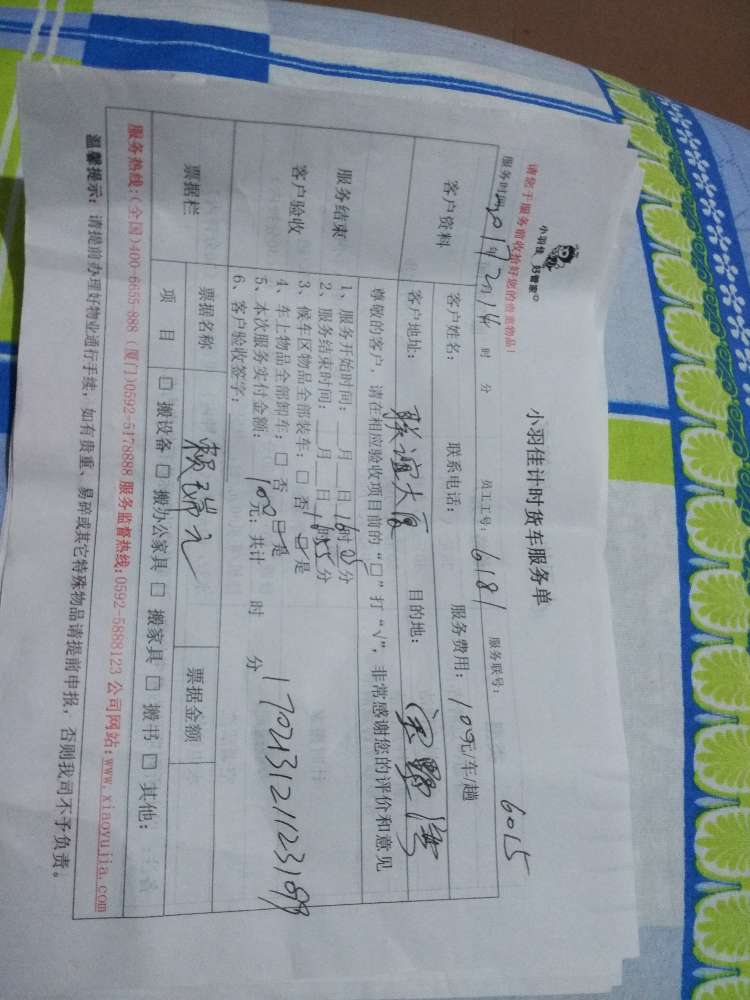 小羽佳 好管家
请您于服务前收拾好您的贵重物品!
小羽佳计时货车服务单
服务时间: 2017年2月14 时 分 员工工号: 6181 服务联号: 6015
客户资料
客户姓名: 联系电话: 服务费用: 100元/车/趟
客户地址: 联谊大厦 目的地:
服务结束
客户验收
尊敬的客户,请在相应验收项目前的“□”打“√”,非常感谢您的评价和意见
1、服务开始时间: 月 日 16时05分
2、服务结束时间: 月 日 16时55分
3、候车区物品全部装车: □ 否 □ 是
4、车上物品全部卸车: □ 否 □ 是
5、本次服务实付金额: 100元; 共计 时 分
6、客户验收签字: 赖瑞元
1702131211231699
票据栏
票据名称 票据金额
项 目 □ 搬设备 □ 搬办公家具 □ 搬家具 □ 搬书 □ 其他:
服务热线:(全国)400-6655-888 (厦门)0592-5178888 服务监督热线:0592-5888123 公司网站:www.xiaoyujia.com
温馨提示: 请提前办理好物业通行手续, 如有贵重、易碎或其它特殊物品请提前申报, 否则我司不予负责。